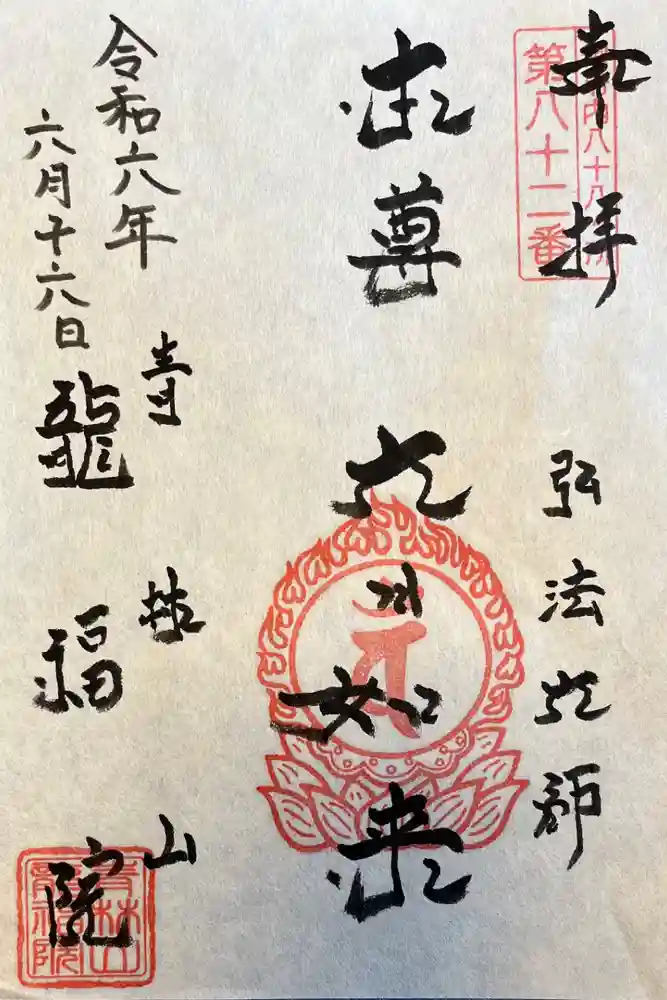 奉拝
内八十八
第八十二番
弘法大師
本尊 大日如来
青林山
龍福院
令和六年
六月十六日
青林山
龍福院